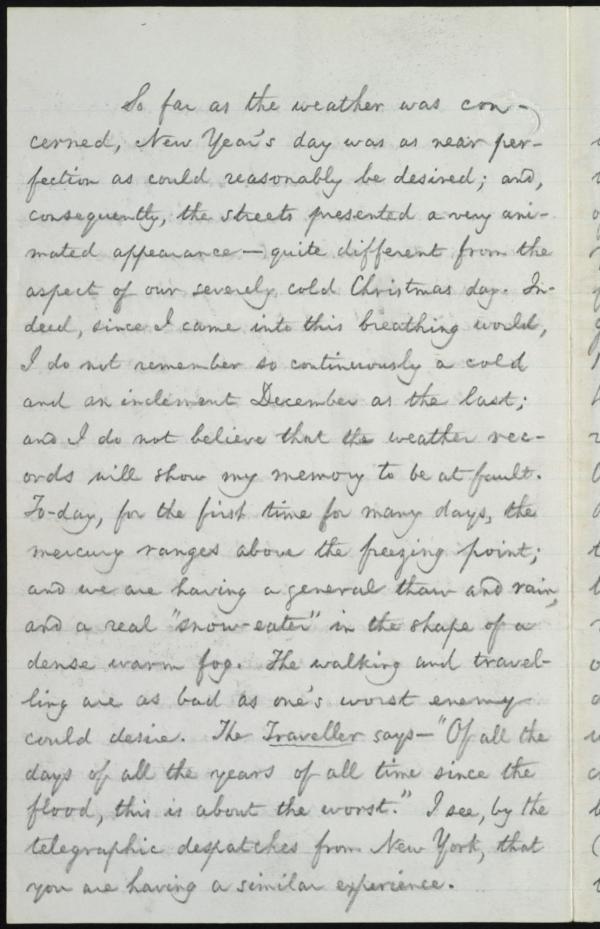 So far as the weather was con-
cerned, New Year's day was as near per-
fection as could reasonably be desired; and,
consequently, the streets presented a very ani-
mated appearance — quite different from the
aspect of our severely cold Christmas day. In-
deed, since I came into this breathing world,
I do not remember so continuously a cold
and an inclement December as the last;
and I do not believe that the weather rec-
ords will show my memory to be at fault.
To-day, for the first time for many days, the
mercury ranges above the freezing point;
and we are having a general thaw and rain,
and a real "snow-eater" in the shape of a
dense warm fog. The walking and travel-
ling are as bad as one's worst enemy
could desire. The Traveller says — "Of all the
days of all the years of all time since the
flood, this is about the worst." I see, by the
telegraphic despatches from New York, that
you are having a similar experience.